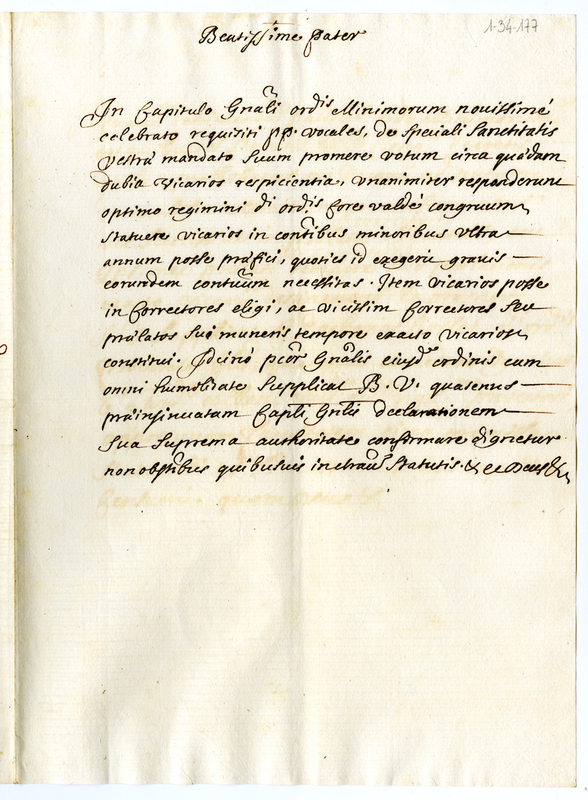 1-34-177
Beatissime Pater
In Capitulo Gnãli ordis Minimorum nouissimè
celebrato requisiti pp. vocales, de speciali Sanctitatis
vestræ mandato Suum promere votum circa quædam
dubia vicarios respicientia, vnanimiter responderunt
optimo regimini di ordis fore valdè congruum
statuere vicarios in contibus minoribus vltra
annum posse præfici, quoties id exegerit grauis
eorundem contuum necessitas. Item vicarios posse
in Correctores eligi, ac vicissim Correctores seu
prælatos sui muneris tempore exacto vicarios
constitui. Idcirco pcor Gnãlis eiusdem ordinis cum
omni humilitate supplicat B. V. quatenus
præinsinuatam Capli Gnlis declarationem
sua suprema authoritate confirmare dignetur
non obstibus quibusuis in contraũ statutis. & ce Deus &c